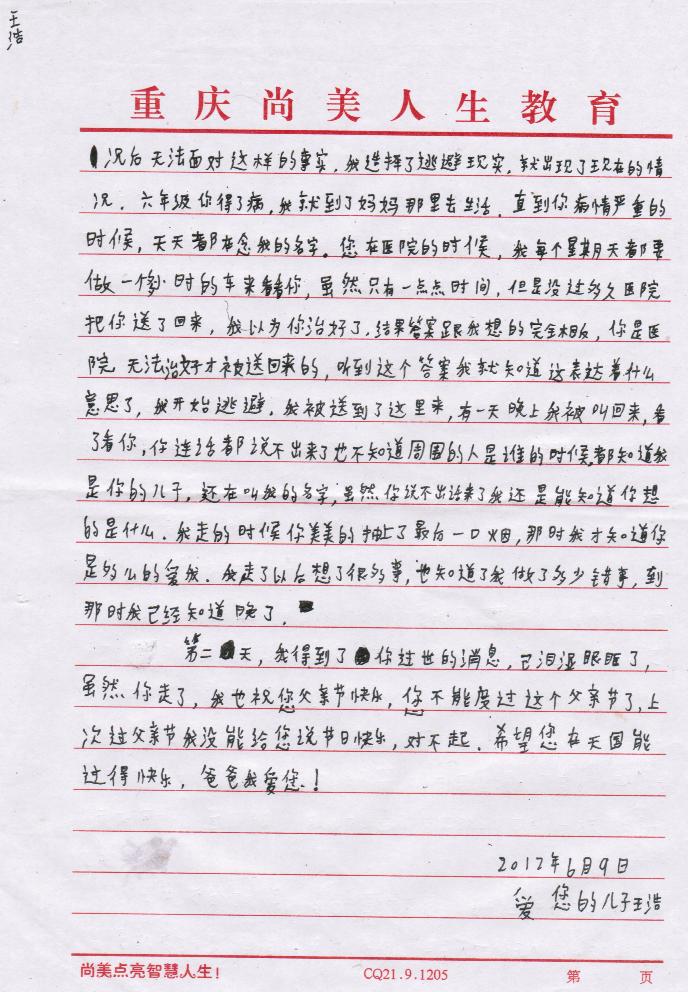 王浩
重庆尚美人生教育
况后无法面对这样的事实，我选择了逃避现实，就出现了现在的情
况．六年级你得了病，我就到了妈妈那里去生活．直到你病情严重的
时候，天天都在念我的名字。您在医院的时候，我每个星期天都要
做一个多小时的车来看看你，虽然只有一点点时间，但是没过多久医院
把你送了回来，我以为你治好了，结果答案跟我想的完全相反，你是医
院无法治好才被送回来的，听到这个答案我就知道这表达着什么
意思了，我开始逃避．我被送到了这里来，有一天晚上我被叫回来，看
了看你，你连话都说不出来了也不知道周围的人是谁的时候，都知道我
是你的儿子，还在叫我的名字，虽然你说不出话来了我还是能知道你想
的是什么．我走的时候你美美的抽上了最后一口烟，那时我才知道你
是多么的爱我．我走了以后想了很多事，也知道了我做了多少错事，到
那时我已经知道晚了．
第二天，我得到了你过世的消息，已泪湿眼眶了，
虽然你走了，我也祝您父亲节快乐，您不能度过这个父亲节了，上
次过父亲节我没能给您说节日快乐，对不起．希望您在天国能
过得快乐，爸爸我爱您！
2012年6月9日
爱您的儿子王浩
尚美点亮智慧人生！ CQ21.9.1205 第 页